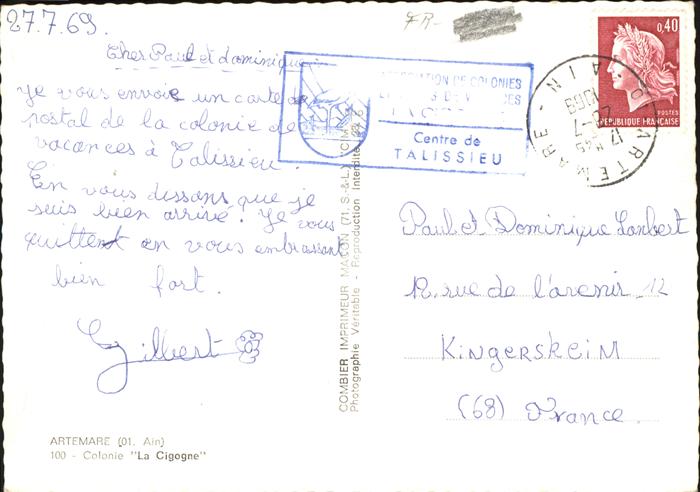 27.7.69.
FR-
Cher Paul et dominique
Je vous envoie un carte de
postal de la colonie de
vacances à Talissieu.
En vous dissans que je
suis bien arrivé. Je vous
quittent en vous embrassant
bien fort.
Gilbert
ARTEMARE (01. Ain)
100 - Colonie "La Cigogne"
COMBIER IMPRIMEUR MACON (71, S.-&-L.) "CIM"
Photographie Véritable - Reproduction Interdite
ASSOCIATION DE COLONIES
Centre de
TALISSIEU
0,40
POSTES
REPUBLIQUE FRANÇAISE
ARTEMARE - AIN
17 H45
28-7
1969
Paul et Dominique Lambert
12. rue de l'avenir 12
KINGERSHEIM
(68) France.